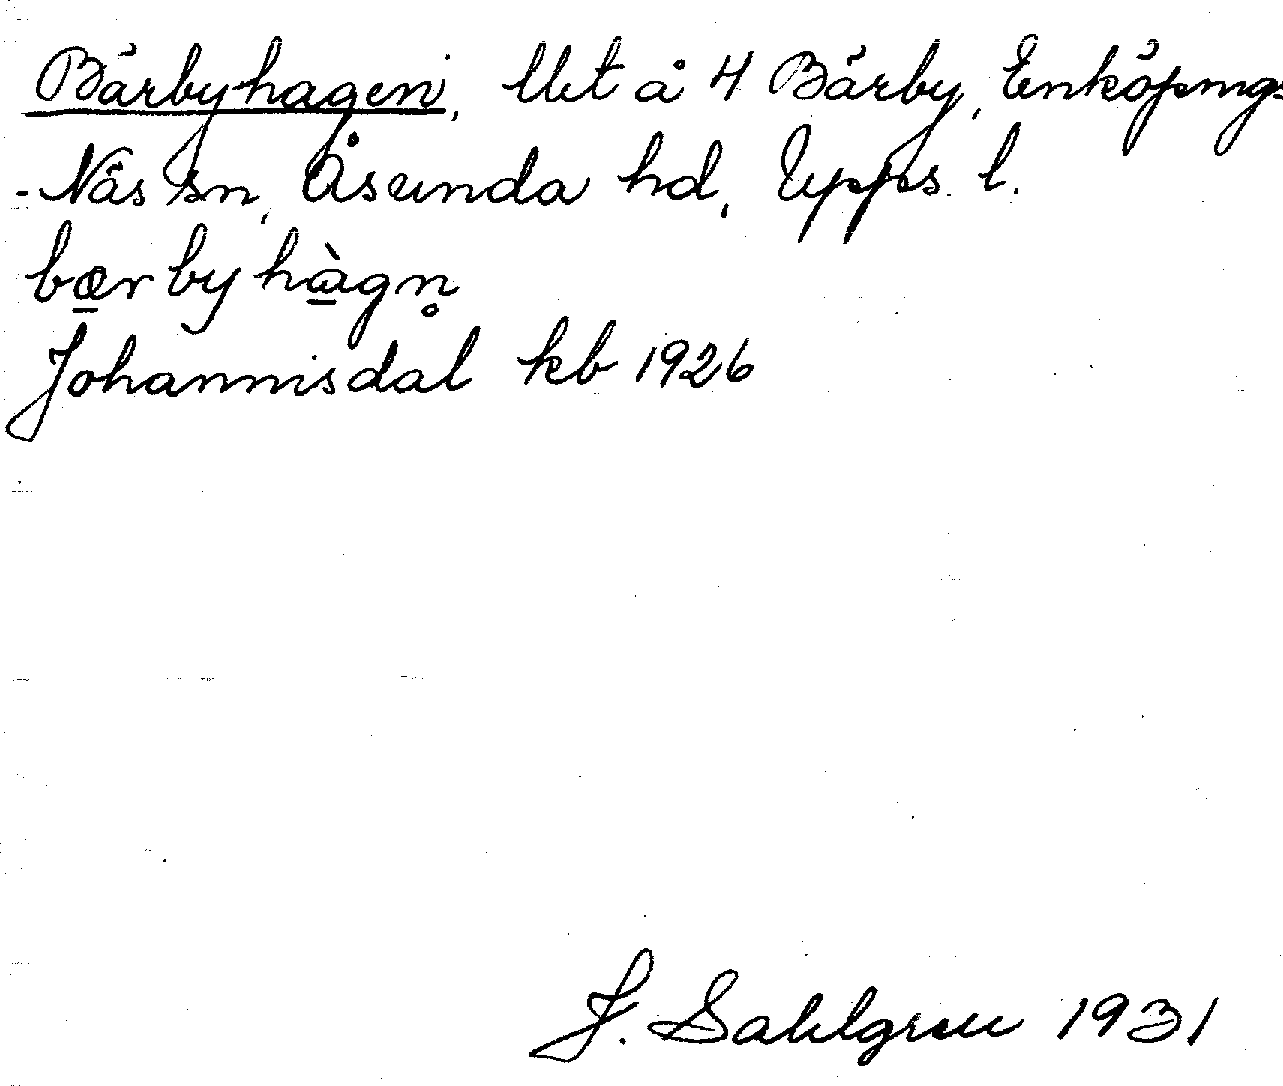 Bärbyhagen, lht å 4 Bärby, Enköpings
-Näs sn, Åsunda hd, Upps. l.
bæ̱rbyhà̱gn̥
Johannisdal kb 1926
J. Sahlgren 1931